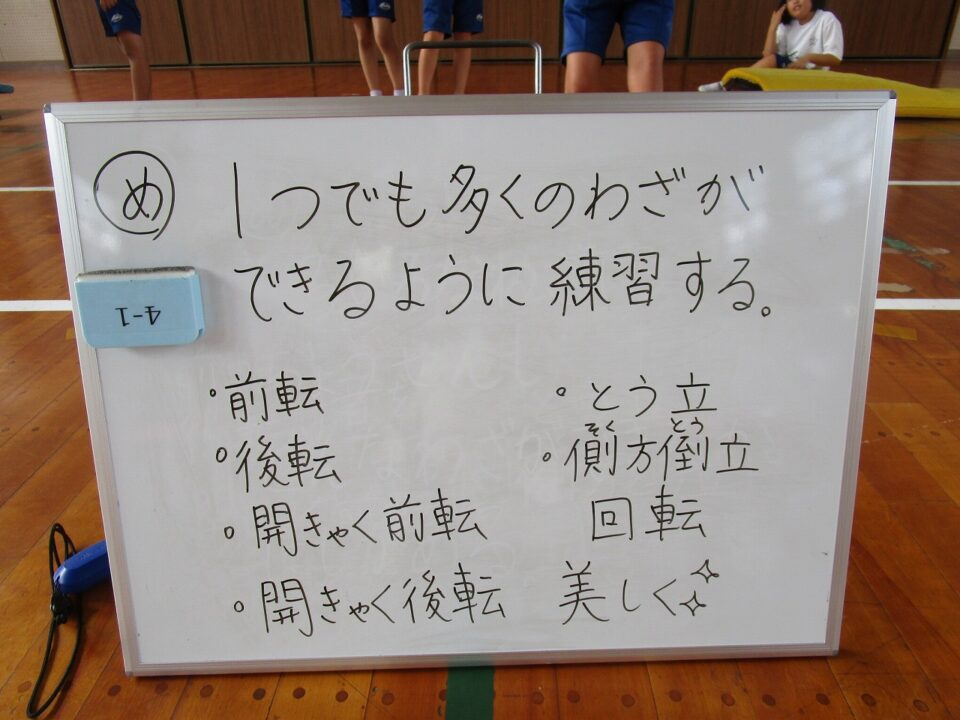 め 1つでも多くのわざが
できるように練習する。
4-1
。前転
。後転
。開きゃく前転
。開きゃく後転
。とう立
。側方倒立
そく とう
回転
美しく